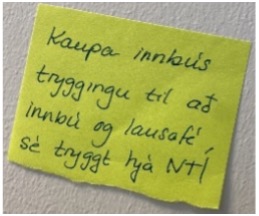 Kaupa innbús
tryggingu til að
innbú og lausafé
sé tryggt hjá NTÍ